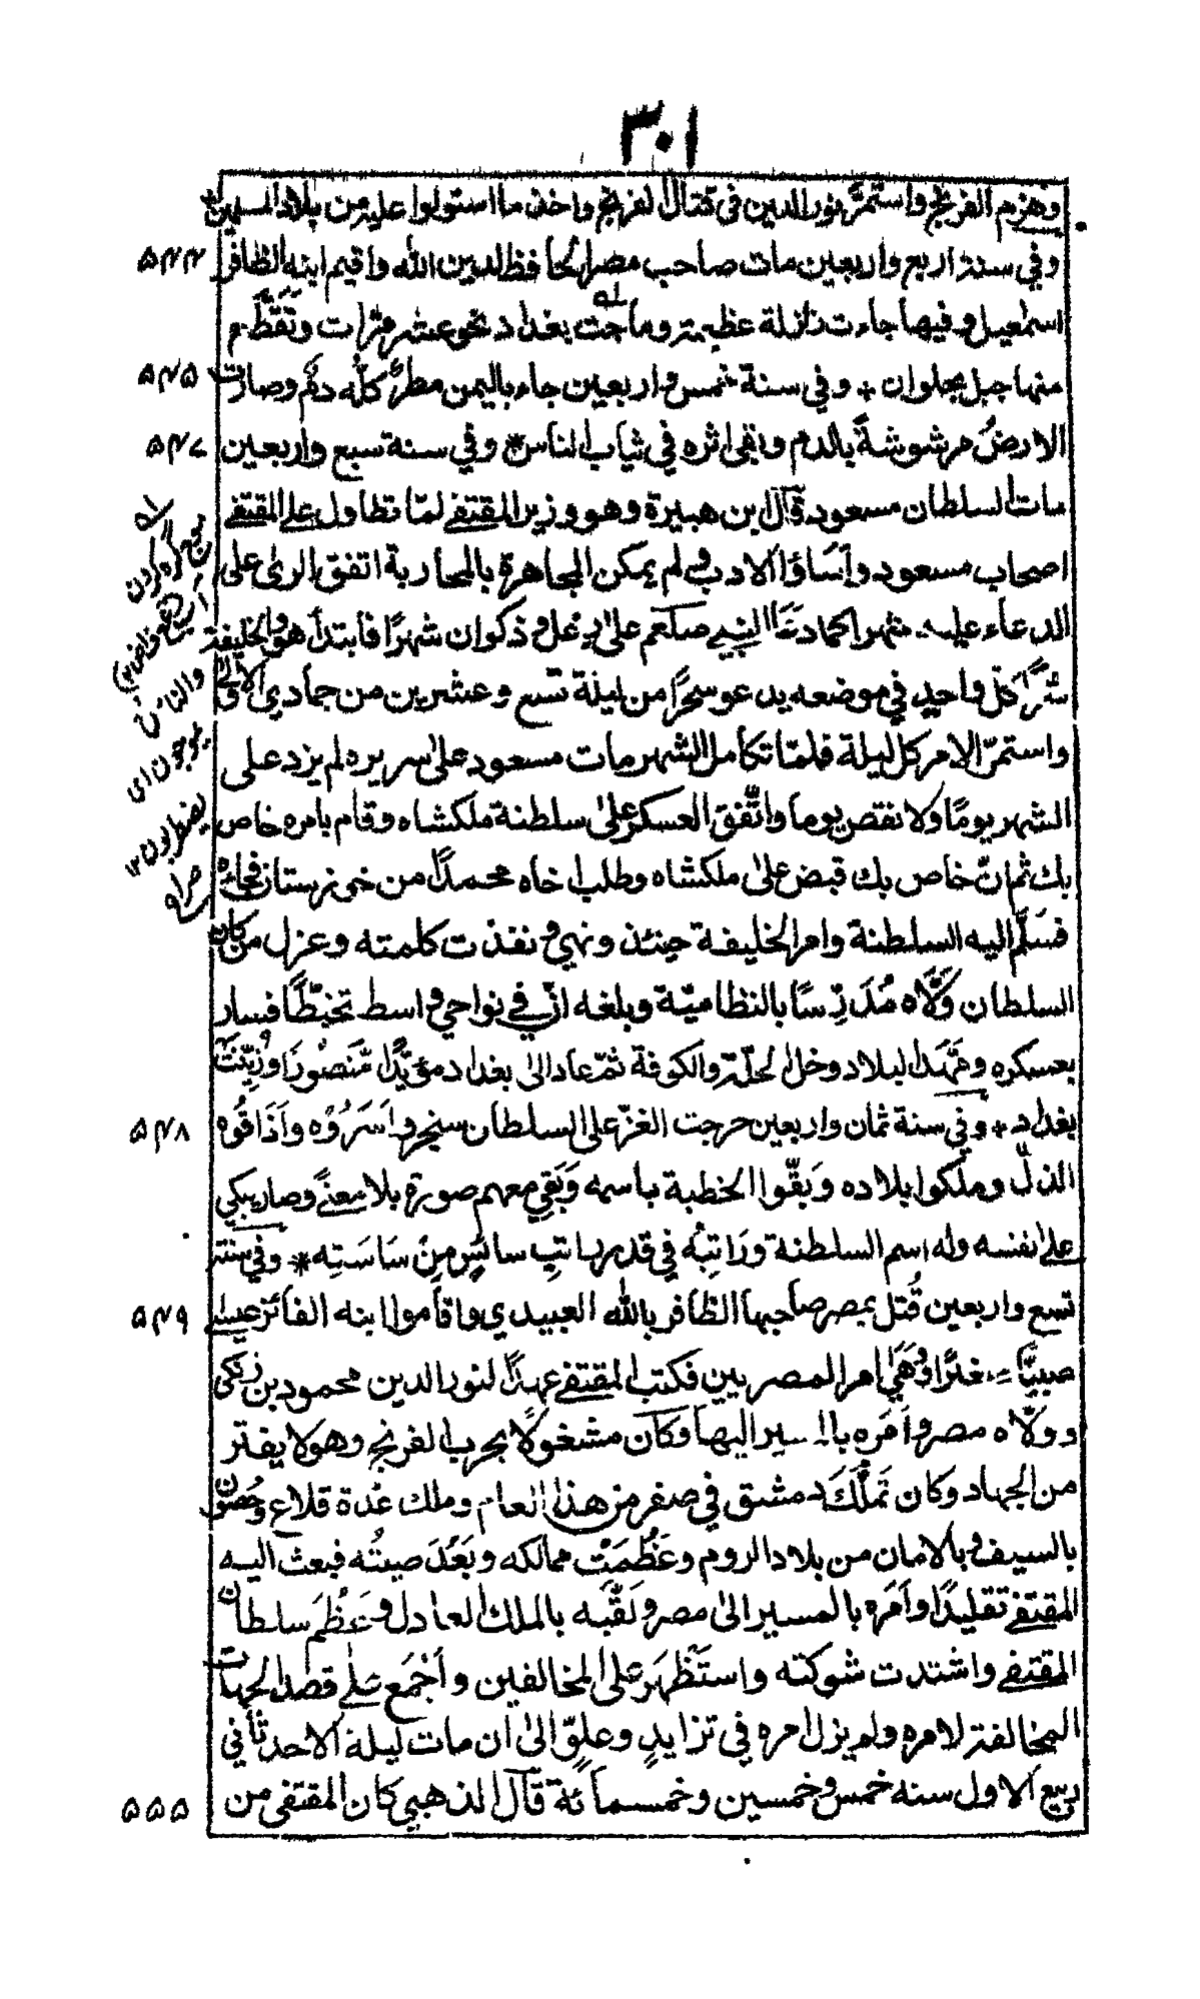 ٣٠١
وهزم الفرنج واستمرّ نور الدين في قتال الفرنج واخذ ما استولوا عليه من بلاد المسلمين*
وفي سنة اربع واربعين مات صاحب مصر الحافظ لدين الله واقيم ابنه الظافر
۵۴۴
اسمعيل وفيها جاءت زلزلة عظيمة وماجت بغداد نحو عشر مرّات وتَقَطّع
منها جبل بحلوان * وفي سنة خمس واربعين جاء باليمن مطرٌ كلّه دمٌ وصارت
۵۴۵
الارضُ مرشوشةً بالدم وبقي اثره في ثياب الناس* وفي سنة سبع واربعين
۵۴۷
مات السلطان مسعود قال ابن هبيرة وهو وزير المقتفي لمّا تطاول علي المقتفي
اصحاب مسعود واَسَاؤا الادب ولم يمكن المجاهرة بالمحاربة اتفق الرئ على
الدعاء عليه شهرا كما دعا النبي صلعم على رعل وذكوان شهرًا فابتدأ هو والخليفة
سرًّا كل واحد في موضعه يدعو سحرًا من ليلة تسع وعشرين من جمادي الاولى
واستمرّ الامر كل ليلة فلمّا تكامل الشهر مات مسعود على سريره لم يزد على
الشهر يومًا ولا نقص يوما واتَّفق العسكر على سلطنة ملكشاه وقام بامره خاص
بك ثم انّ خاص بك قبض على ملكشاه وطلب اخاه محمدًا من خوزستان فجاءه
فسَلّم اليه السلطنة وامر الخليفة حينئذ ونهي ونفذت كلمته وعزل من كان
السلطان وَلّاه مُدَرِّسًا بالنظاميّة وبلغه انّ في نواحي واسط تخبّطًا فسار
بعسكره ومَهَّد البلاد ودخل الحلّة والكوفة ثمّ عاد الى بغداد مؤيّدًا مّنصُورًا وزُيِّنتْ
بغداد * وفي سنة ثمان واربعين خرجت الغزّ على السلطان سنجر واَسَرُوْه واَذَاقُوه
۵۴۸
الذلّ وملكوا بلاده وَبقّوا الخطبة باسمه وَبَقِي معهم صورة بلا معنًي وصار يبكي
على نفسه وله اسم السلطنة ورَاتِبُه في قدر راتب سائسٍ مِنْ سَاسَتِه * وفي سنة
تسع واربعين قُتل بمصر صاحبها الظافر بالله العبيدي واقاموا ابنه الفائز عيسى
۵۴۹
صبيًّا صغيرًا وَوَهَي امر المصريين فكتب المقتفي عهدًا لنور الدين محمود بن زنكي
وولّاه مصر واَمَره بالسير اليها وكان مشغولًا بحرب الفرنج وهو لا يفتر
من الجهاد وكان تَملَّكَ دمشق في صفر من هذا العام وملك عدة قلاع وحصون
بالسيف وبالامان من بلاد الروم وعَظُمَتْ ممالكه وبَعُدَ صيتُه فبعث اليه
المقتفي تقليدًا واَمَره بالمسير الى مصر ولَقَّبه بالملك العادل وعَظُمَ سلطان
المقتفي واشتدت شوكته واستَظْهَر على المخالفين واَجْمَع علي قصد الجهات
المخالفة لامره ولم يزل امره في تزايدٍ وعلوٍّ الى ان مات ليلة الاحد ثاني
ربيع الاول سنه خمس وخمسين وخمسمائة قال الذهبي كان المقتفى من
۵۵۵